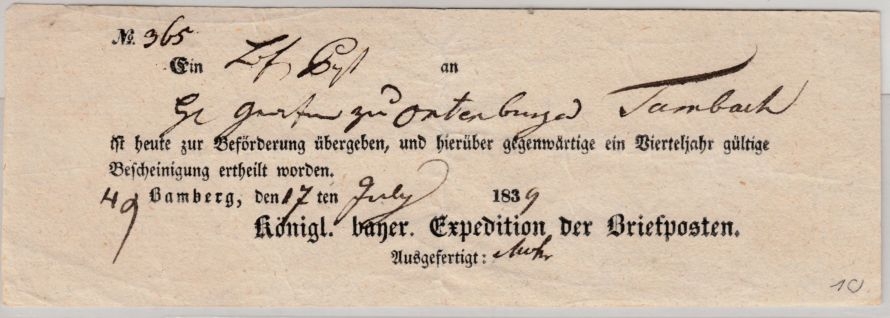 №. 365
Ein an
zu Ortenburg Tambach
ist heute zur Beförderung übergeben, und hierüber gegenwärtige ein Vierteljahr gültige
Bescheinigung ertheilt worden.
49 Bamberg, den 17 ten July 1839
Königl. bayer. Expedition der Briefposten.
Ausgefertigt: Mohr
10